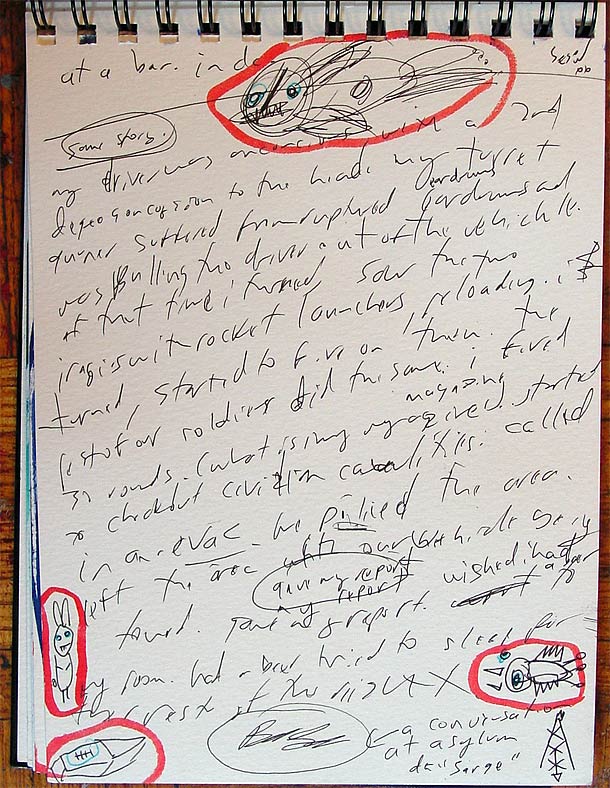 at a bar. in de
same story.
my driver was unconscious with a 2nd
degree concussion to the head. my turret
gunner suffered from ruptured eardrums
eardrums and
was pulling the driver out of the vehichle.
at that time i turned, saw the two
iraqis with rocket launchers, reloading. i
turned, started to fire on them. the
rest of our soldiers did the same. i fired
magazine
30 rounds. (what is in my
started
to checkout civilian
called
in an evac. we
the area.
left the area with our vehichle being
give my report
towed. gave my report. wished i had a beer
my report
to
my room. had a beer tried to sleep for
the rest of the night X X
a conversation
at asylum
de "Sarge"